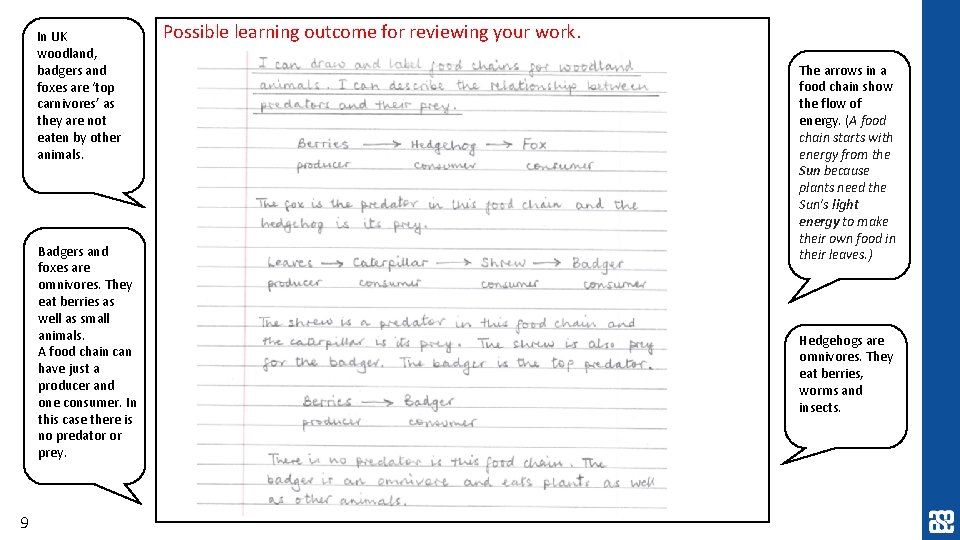 In UK
woodland,
badgers and
foxes are ‘top
carnivores’ as
they are not
eaten by other
animals.
Badgers and
foxes are
omnivores. They
eat berries as
well as small
animals.
A food chain can
have just a
producer and
one consumer. In
this case there is
no predator or
prey.
9
Possible learning outcome for reviewing your work.
I can draw and label food chains for woodland
animals. I can describe the relationship between
predators and their prey.
Berries → Hedgehog → Fox
producer consumer consumer
The fox is the predator in this food chain and the
hedgehog is its prey.
Leaves → Caterpillar → Shrew → Badger
producer consumer consumer consumer
The shrew is a predator in this food chain and
the caterpillar is its prey. The shrew is also prey
for the badger. The badger is the top predator.
Berries → Badger
producer consumer
There is no predator is this food chain. The
badger is an omnivore and eats plants as well
as other animals.
The arrows in a
food chain show
the flow of
energy. (A food
chain starts with
energy from the
Sun because
plants need the
Sun's light
energy to make
their own food in
their leaves.)
Hedgehogs are
omnivores. They
eat berries,
worms and
insects.
ase